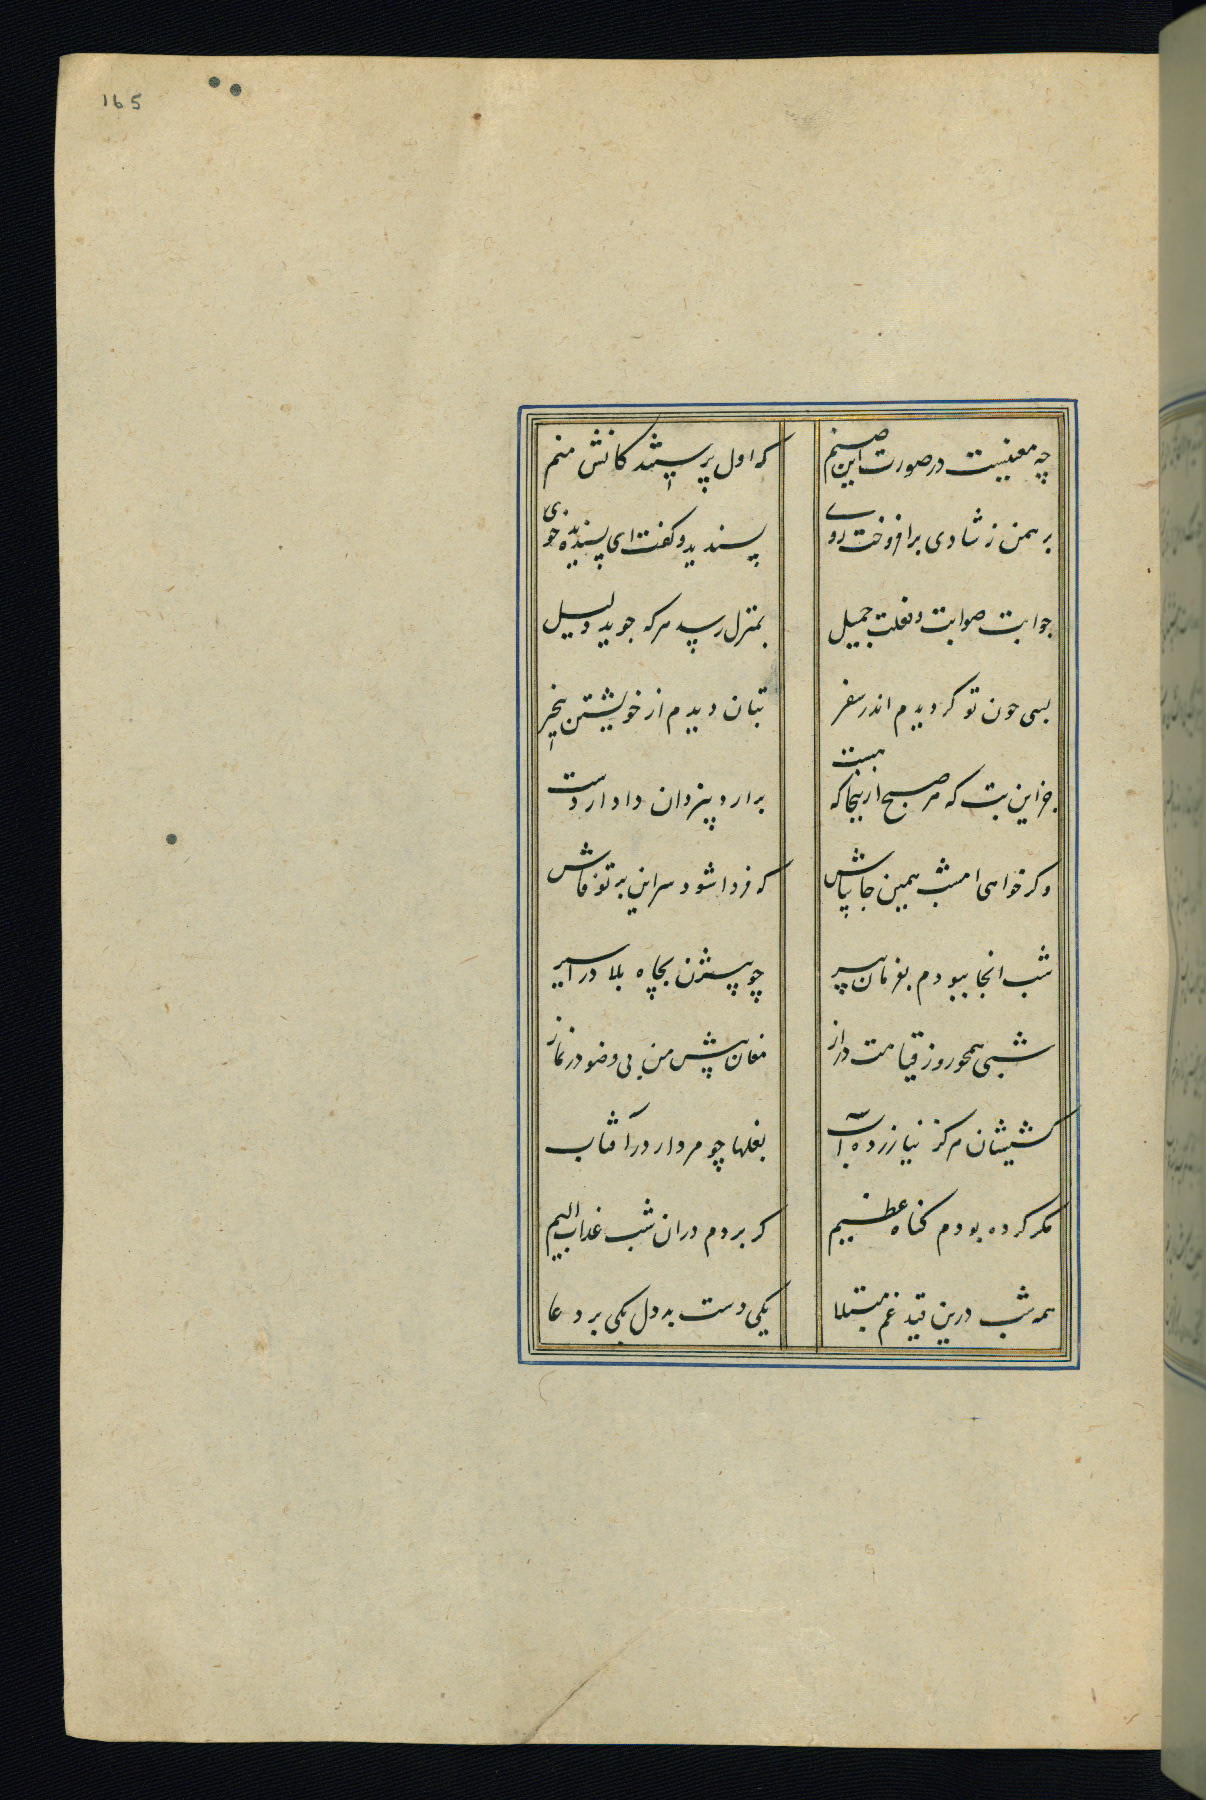 165
چه معنیست در صورت این صنم که اول پرستندکانش منم
برهمن ز شادی برافروخت روی پسندید و کفت ای پسندیده خوی
جوابت صوابت و فعلت جمیل بمنزل رسد هرکه جوید دلیل
بسی چون تو کردیدم اندر سفر بتان دیدم از خویشتن بیخبر
جز این بت که هر صبح ازینجا که هست برارد بیزدان دادار دست
وکر خواهی امشب همین جا بباش که فردا شود سر این بر تو فاش
شب انجا ببودم بفرمان پیر چو بیژن بچاه بلا در اسیر
شبی همچو روز قیامت دراز مغان پیش من بی وضو در نماز
کشیشان هرکز نیازرده آب بغلها چو مردار در آفتاب
مکر کرده بودم کناه عظیم که بردم دران شب عذاب الیم
همه شب درین قید غم مبتلا یکی دست بر دل یکی بر دعا